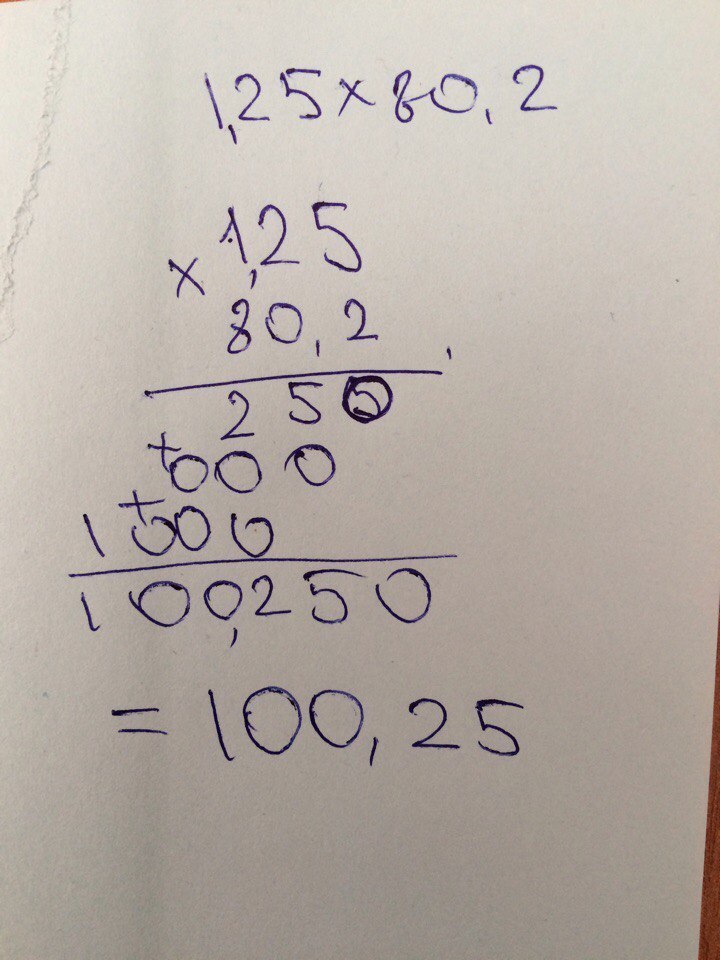 1,25×80,2
1,25
×
80,2
250
+
000
+
1000
100,250
=100,25